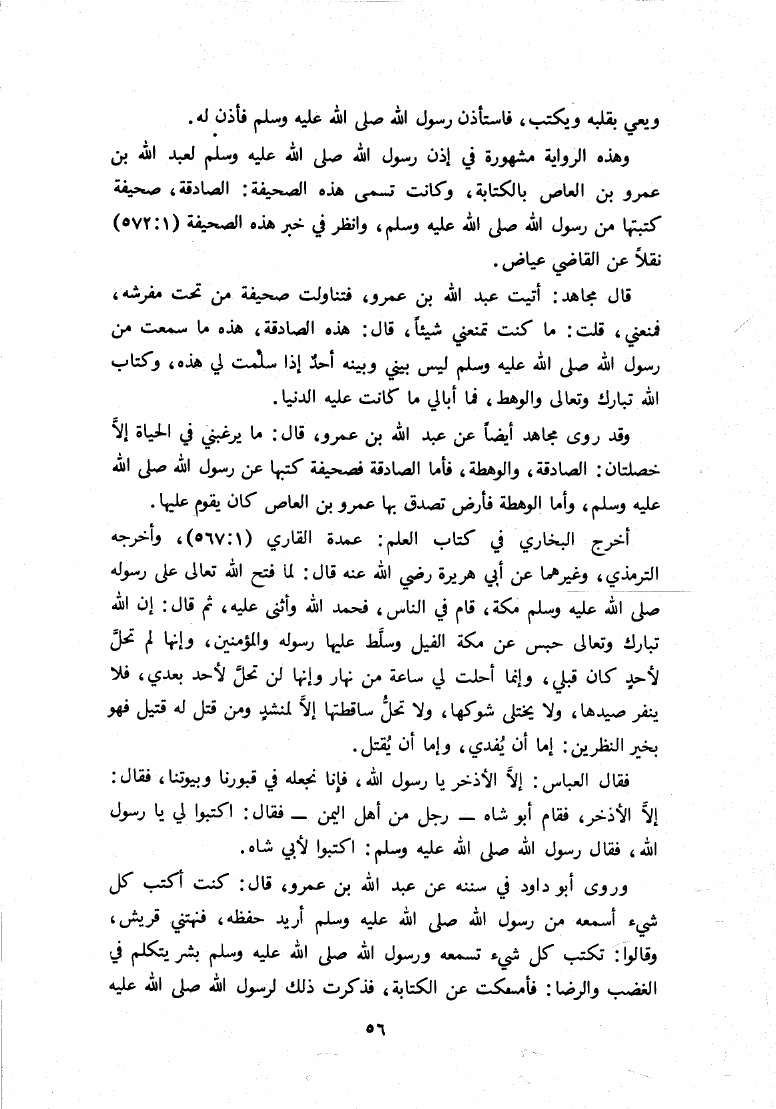 ويعي بقلبه ويكتب، فاستأذن رسول الله صلى الله عليه وسلم فأذن له.
وهذه الرواية مشهورة في إذن رسول الله صلى الله عليه وسلم لعبد الله بن
عمرو بن العاص بالكتابة، وكانت تسمى هذه الصحيفة: الصادقة، صحيفة
كتبها من رسول الله صلى الله عليه وسلم، وانظر في خبر هذه الصحيفة (٥٧٢:١)
نقلاً عن القاضي عياض.
قال مجاهد: أتيت عبد الله بن عمرو، فتناولت صحيفة من تحت مفرشه،
فمنعني، قلت: ما كنت تمنعني شيئاً، قال: هذه الصادقة، هذه ما سمعت من
رسول الله صلى الله عليه وسلم ليس بيني وبينه أحدٌ إذا سلمت لي هذه، وكتاب
الله تبارك وتعالى والوهط، فما أبالي ما كانت عليه الدنيا.
وقد روى مجاهد أيضاً عن عبد الله بن عمرو، قال: ما يرغبني في الحياة إلاَّ
خصلتان: الصادقة، والوهطة، فأما الصادقة فصحيفة كتبها عن رسول الله صلى الله
عليه وسلم، وأما الوهطة فأرض تصدق بها عمرو بن العاص كان يقوم عليها.
أخرج البخاري في كتاب العلم: عمدة القاري (٥٦٧:١)، وأخرجه
الترمذي، وغيرهما عن أبي هريرة رضي الله عنه قال: لما فتح الله تعالى على رسوله
صلى الله عليه وسلم مكة، قام في الناس، فحمد الله وأثنى عليه، ثم قال: إن الله
تبارك وتعالى حبس عن مكة الفيل وسلَّط عليها رسوله والمؤمنين، وإنها لم تحلَّ
لأحدٍ كان قبلي، وإنما أحلت لي ساعة من نهار وإنها لن تحلَّ لأحد بعدي، فلا
ينفر صيدها، ولا يختلى شوكها، ولا تحلُّ ساقطتها إلاَّ لمنشدٍ ومن قتل له قتيل فهو
بخير النظرين: إما أن يُفدي، وإما أن يُقتل.
فقال العباس: إلاَّ الأذخر يا رسول الله، فإنا نجعله في قبورنا وبيوتنا، فقال:
إلاَّ الأذخر، فقام أبو شاه — رجل من أهل اليمن — فقال: اكتبوا لي يا رسول
الله، فقال رسول الله صلى الله عليه وسلم: اكتبوا لأبي شاه.
وروى أبو داود في سننه عن عبد الله بن عمرو، قال: كنت أكتب كل
شيء أسمعه من رسول الله صلى الله عليه وسلم أريد حفظه، فنهتني قريش،
وقالوا: تكتب كل شيء تسمعه ورسول الله صلى الله عليه وسلم بشر يتكلم في
الغضب والرضا: فأمسكت عن الكتابة، فذكرت ذلك لرسول الله صلى الله عليه
٥٦